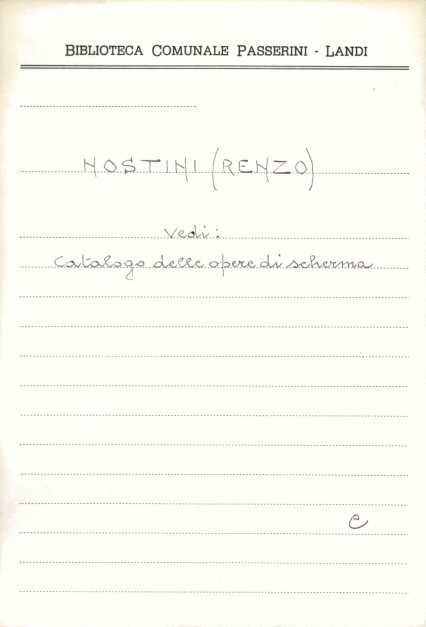 BIBLIOTECA COMUNALE PASSERINI - LANDI
NOSTINI (RENZO)
Vedi:
Catalogo delle opere di scherma
e